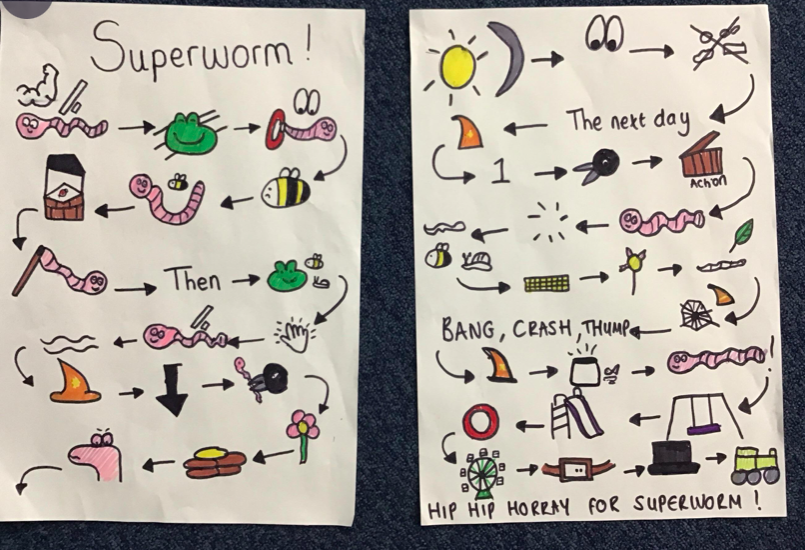 Superworm!
Then
The next day
1
Action
BANG, CRASH, THUMP
HIP HIP HORRAY FOR SUPERWORM!